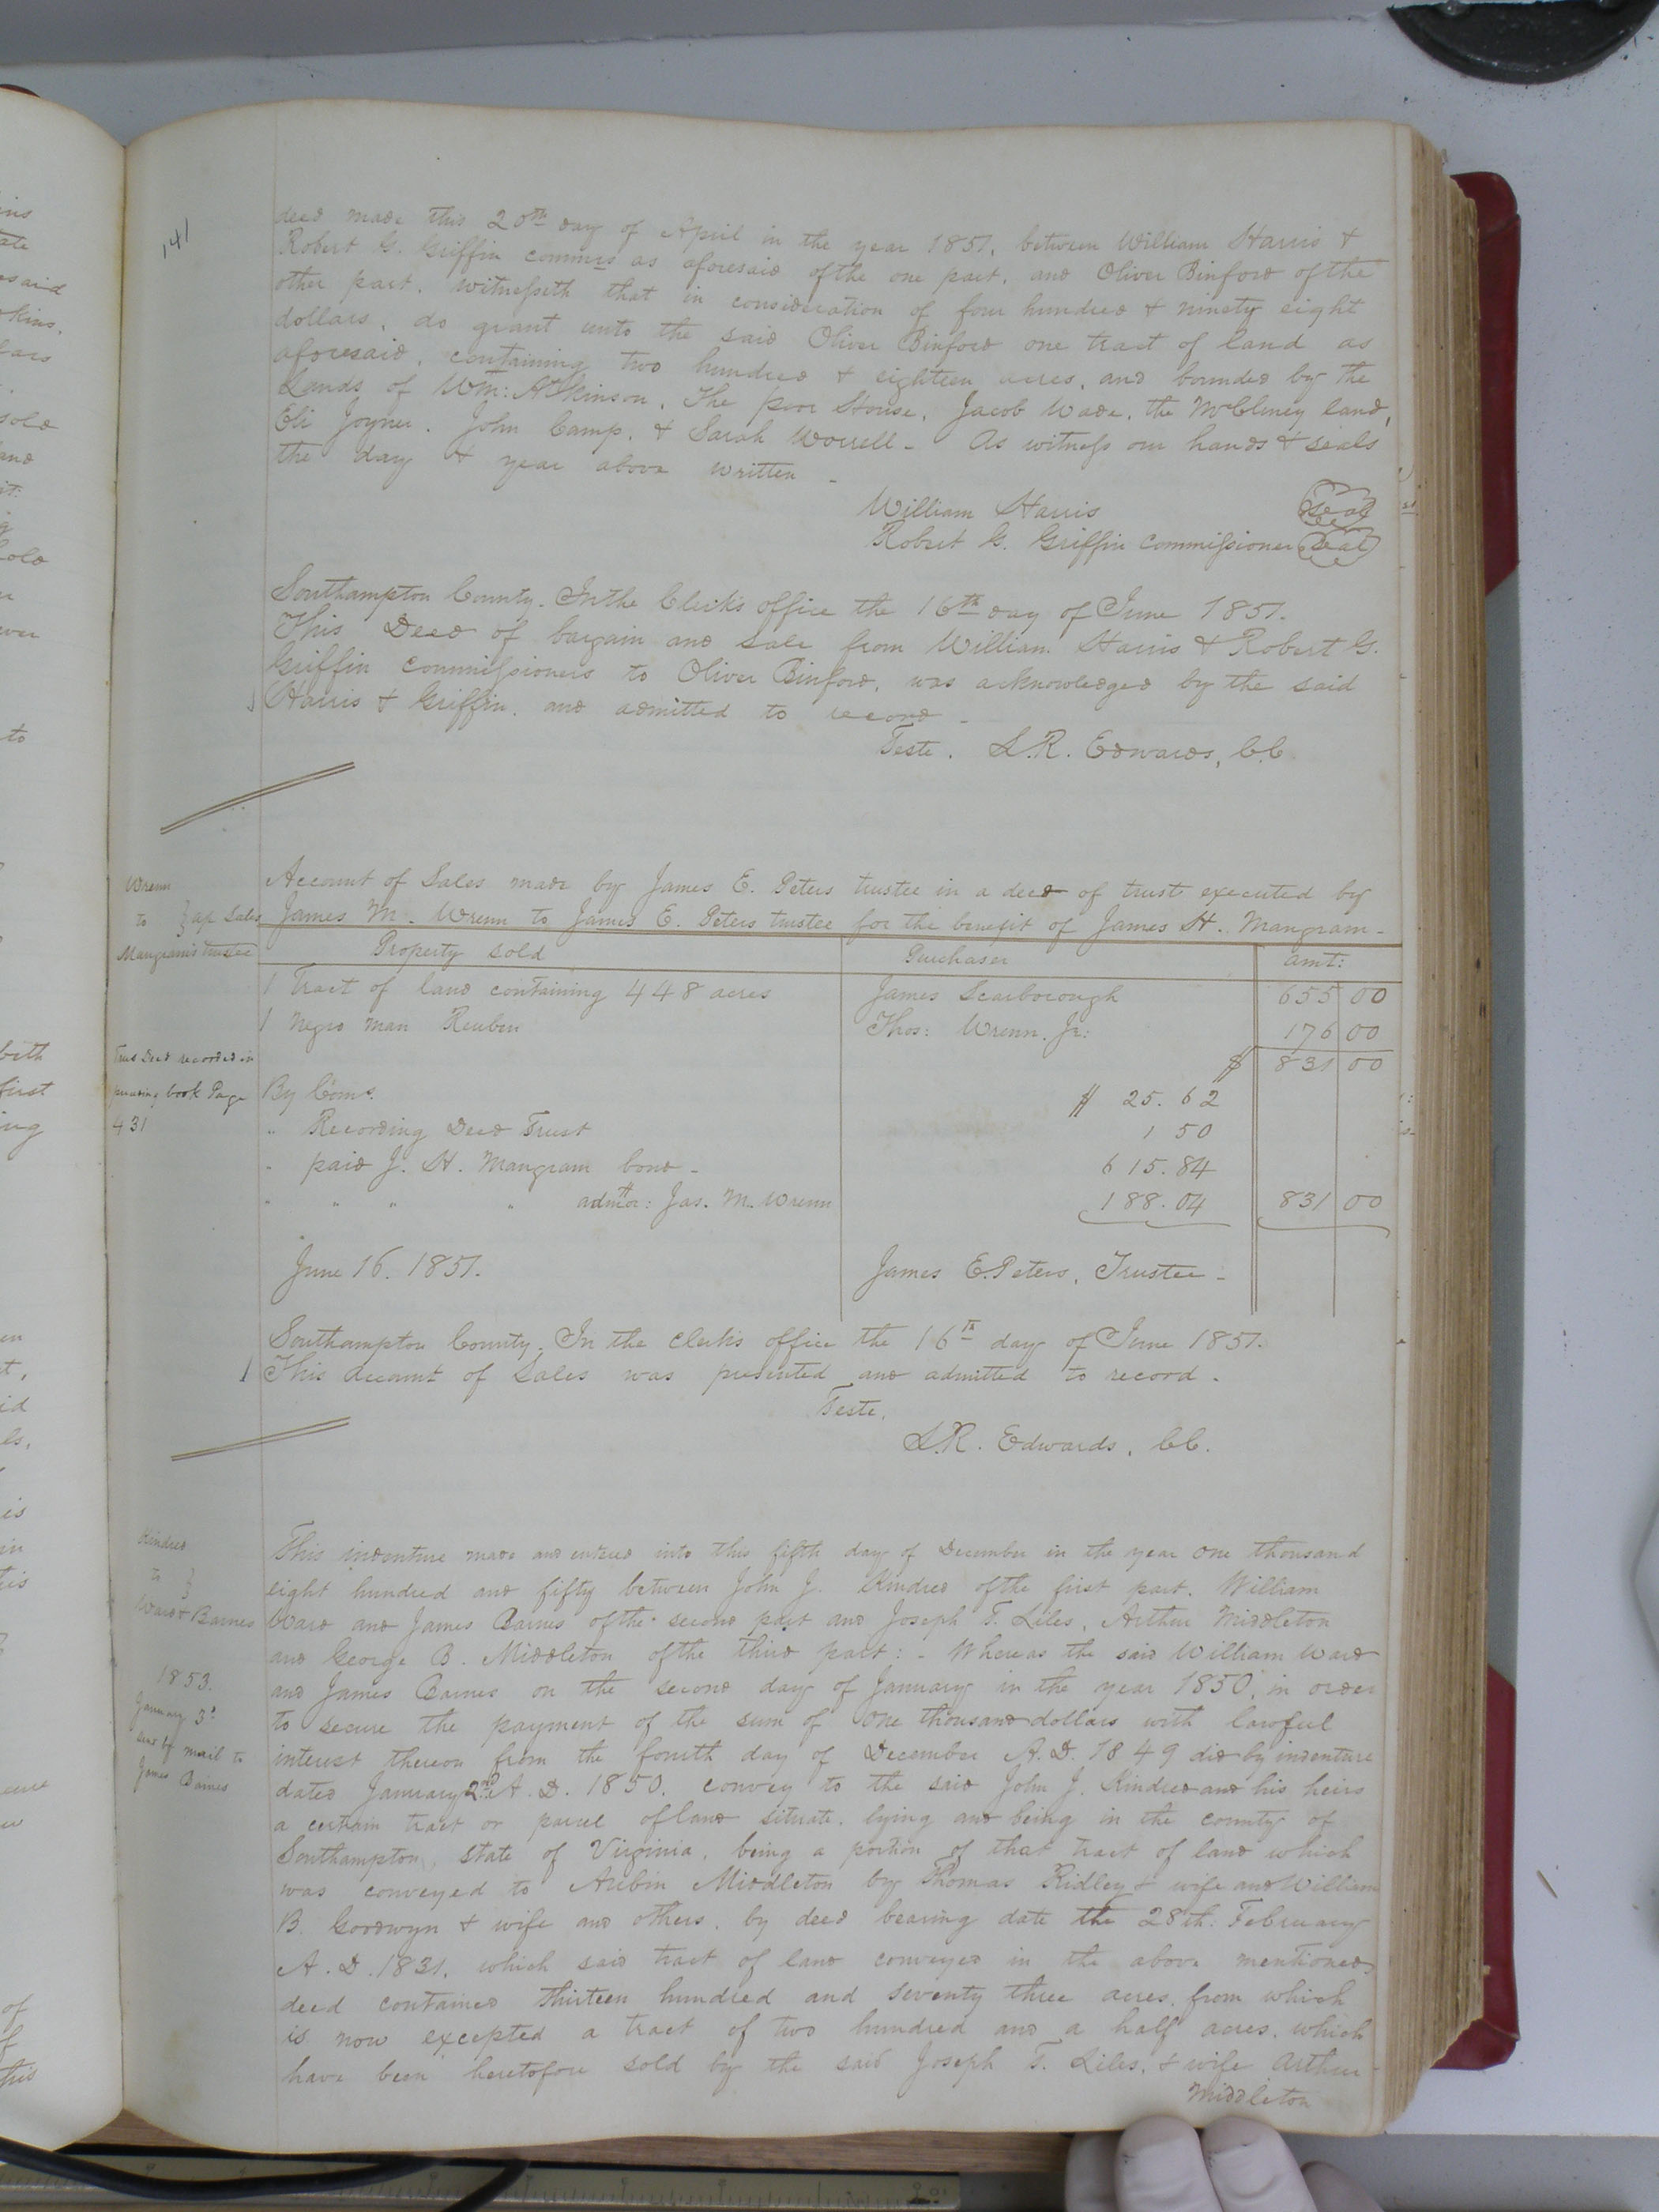 141
deed made this 20th day of April in the year 1851, between William Harris &
Robert G. Griffin commrs as aforesaid of the one part, and Oliver Binford of the
other part. Witnesseth that in consideration of four hundred & ninety eight
dollars, do grant unto the said Oliver Binford one tract of land as
aforesaid, containing two hundred & eighteen acres, and bounded by the
Lands of Wm: Atkinson, The poor House, Jacob Wade, the McCleney land,
Eli Joyner, John Camp, & Sarah Worrell - As witness our hands & seals
the day & year above written -
William Harris seal
Robert G. Griffin commissioner seal
Southampton County. In the Clerk's office the 16th day of June 1851.
This Deed of bargain and sale from William Harris & Robert G.
Griffin commissioners to Oliver Binford, was acknowledged by the said
Harris & Griffin, and admitted to record -
Teste. L.R. Edwards, C.C.
Wrenn
to } a/c Sales
Mangram's Trustee
Account of Sales made by James E. Peters trustee in a deed of trust executed by
James M. Wrenn to James E. Peters trustee for the benefit of James H. Mangram -
Property sold Purchaser amt:
1 Tract of land containing 448 acres James Scarborough 655 00
1 Negro man Reuben Thos: Wrenn. Jr: 176 00
$ 831 00
Trust Deed recorded in
book Page
431
By Coms. $ 25.62
" Recording Deed Trust 1 50
" paid J. H. Mangram bond - 615.84
" " " " admor: Jas. M. Wrenn 188.04 831 00
June 16. 1851. James E. Peters, Trustee -
Southampton County. In the clerk's office the 16th day of June 1851.
This account of Sales was presented and admitted to record.
Teste.
L.R. Edwards, C.C.
Kindred
to }
Ward & Barnes
1853.
January 3d
sent by mail to
James Barnes
This indenture made and entered into this fifth day of December in the year one thousand
eight hundred and fifty between John J. Kindred of the first part, William
Ward and James Barnes of the second part and Joseph T. Liles, Arthur Middleton
and George B. Middleton of the third part: - Whereas the said William Ward
and James Barnes on the second day of January in the year 1850, in order
to secure the payment of the sum of one thousand dollars with lawful
interest thereon from the fourth day of December A.D. 1849 did by indenture
dated January 2nd A.D. 1850, convey to the said John J. Kindred and his heirs
a certain tract or parcel of land situate, lying and being in the county of
Southampton, state of Virginia, being a portion of that tract of land which
was conveyed to Middleton by Thomas Ridley & wife and William
B. Goodwyn & wife and others, by deed bearing date the 28th: February
A.D. 1831, which said tract of land conveyed in the above mentioned
deed contained thirteen hundred and seventy three acres, from which
is now excepted a tract of two hundred and a half acres, which
have been heretofore sold by the said Joseph T. Liles, & wife Arthur
Middleton